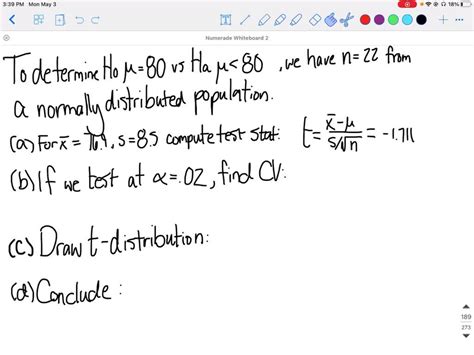 3:39 PM Mon May 3
18%
Numerade Whiteboard 2
To determine Ho μ=80 vs Ha μ<80, we have n=22 from
a normally distributed population.
(a) For x̄ = 76.9, s=8.5 compute test stat: t= x̄-μ / s/√n = -1.711
(b) If we test at α=.02, find CV:
(c) Draw t-distribution:
(d) Conclude:
189
273